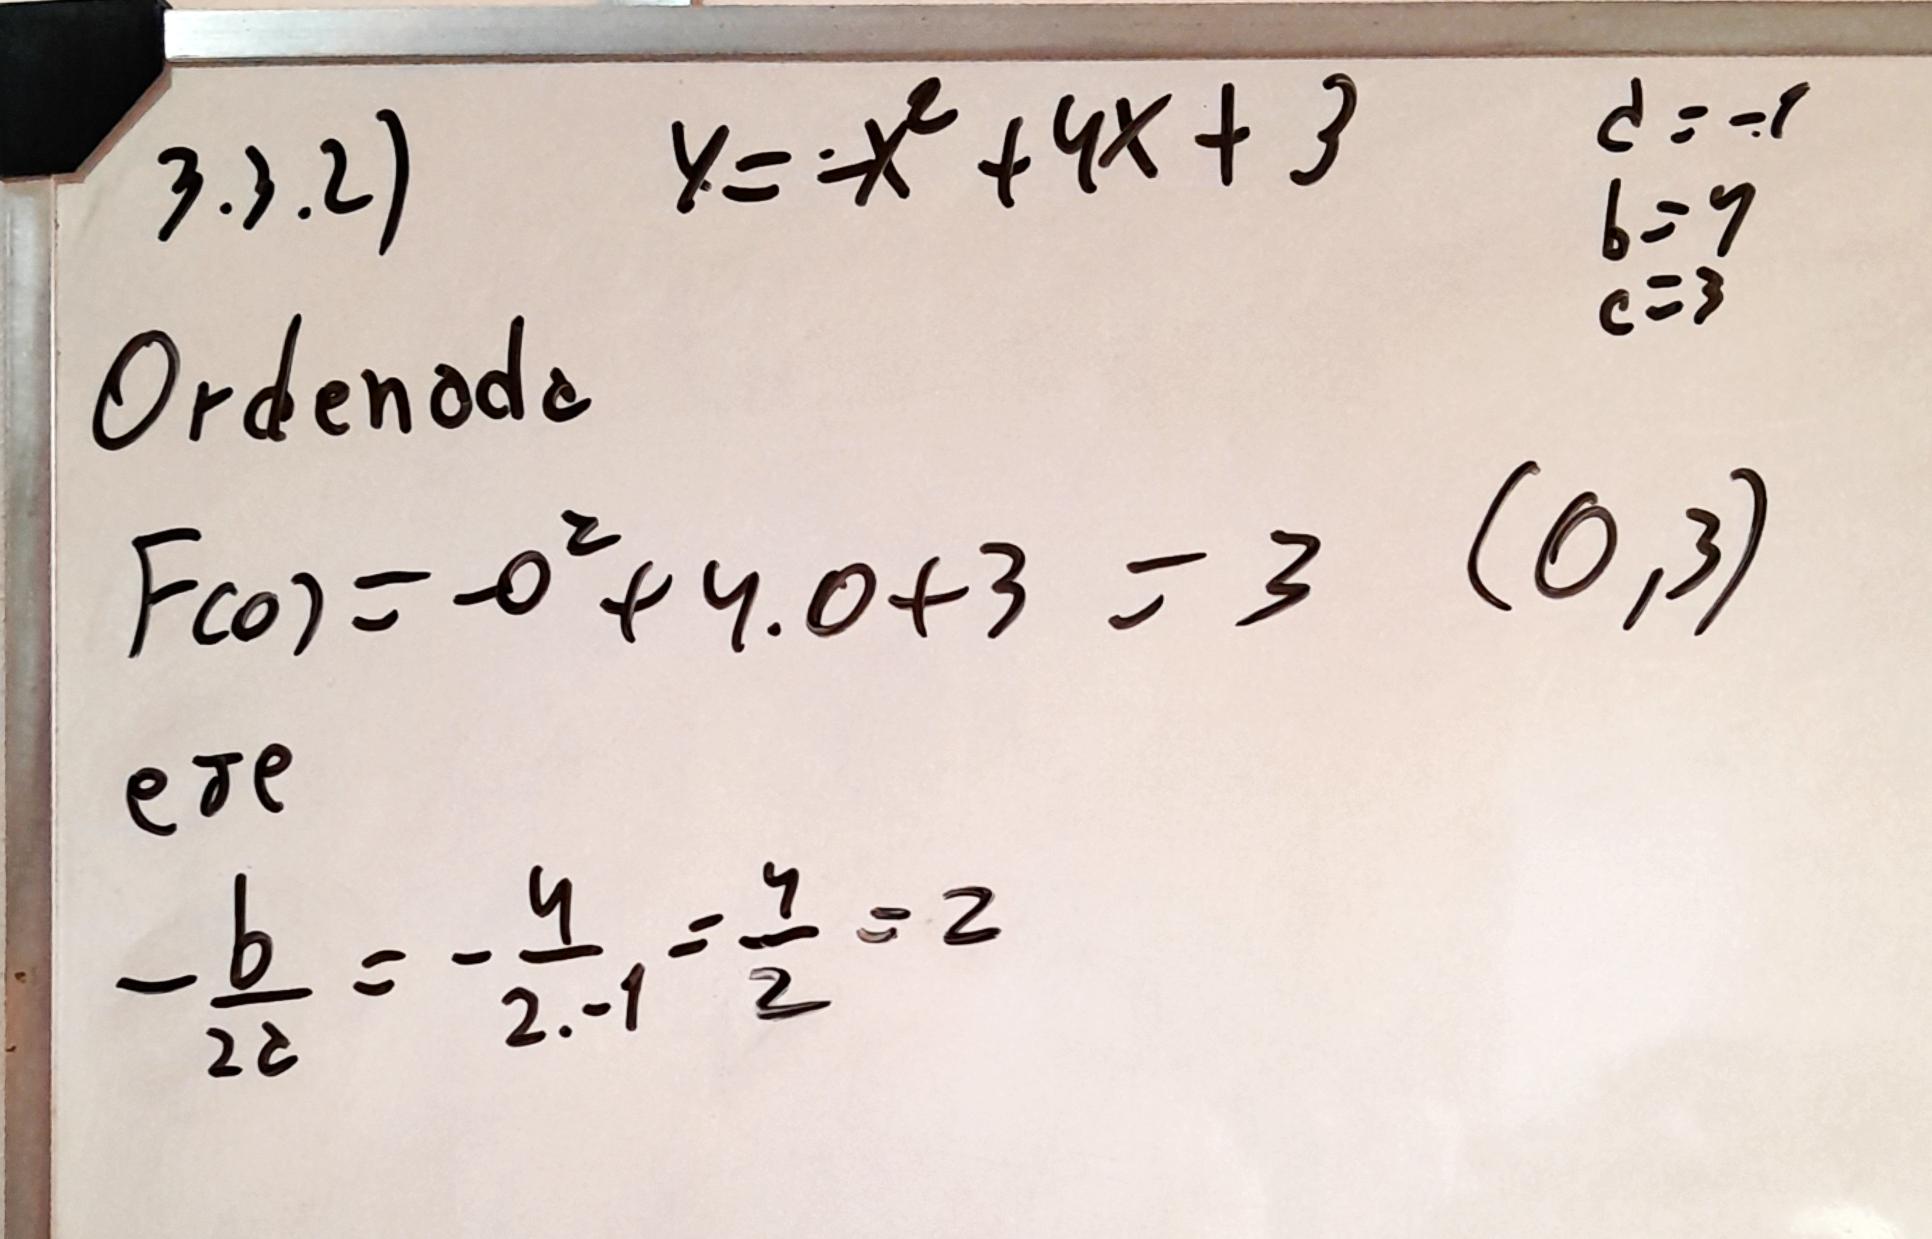 3.3.2) y = -x² + 4x + 3 a = -1
b = 4
c = 3
Ordenada
F(0) = -0² + 4.0 + 3 = 3 (0,3)
eje
-b/2a = -4/2.-1 = 4/2 = 2